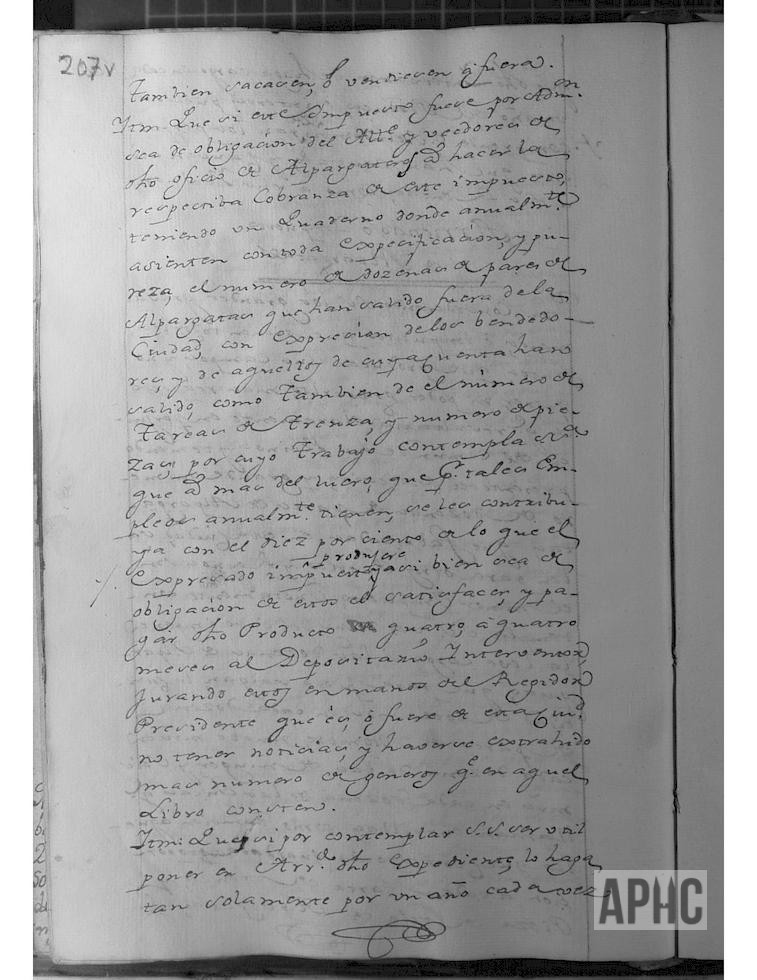 207v
tambien sacasen, ô vendiesen â fuera.
Itm. Que si este Ympuesto fuese por Adm.on
sea de obligacion del Alle. y veedores de
dho oficio de Alpargateros â hacer la
respectiba Cobranza de este impuesto,
teniendo un Quaderno donde anualmte.
asienten con toda expecificacion, y pu-
reza, el numero de dozenas de pares de
Alpargatas que han salido fuera de la
Ciudad, con expresion de los bendedo-
res, y de aquellos de cuya Cuenta han
salido, como tambien de el número de
tareas de trenza, y numero de pie-
zas, por cuyo trabajo contempla
que â mas del lucro, que pr. tales Em-
pleos anualmte. tienen, se les contribu-
ya con el diez por ciento de lo que el
produjere
expresado impuesto, y asi bien sea de
obligacion de estos el satisfacer, y pa-
gar dho Producto quatro, â quatro
meses al Depositario Interventor,
jurando estos en manos del Regidor
Presidente que és, ô fuere de esta Ciud.
no tener noticias, y haverse extrahido
mas numero de generos qe. en aquel
Libro consten.
Itm: Que si por contemplar S.S. ser util
poner en Arr.do dho expediente, lo haga
tan solamente por un año cada vez
APHC